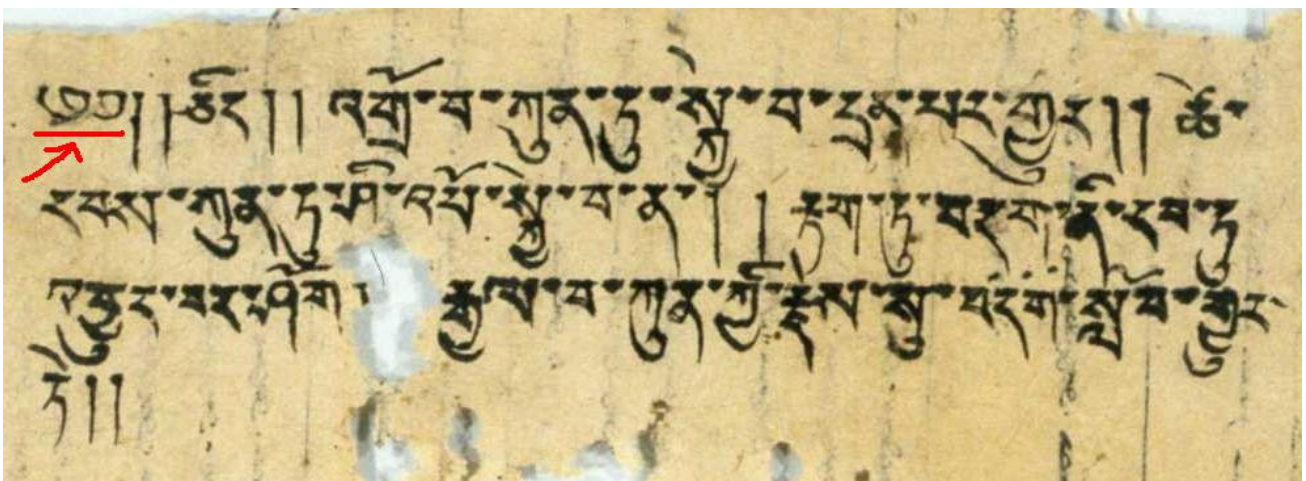 ༄༅། །ཅིང།། འགྲོ་བ་ཀུན་ཏུ་སྐྱེ་བ་དྲན་པར་གྱུར།། ཚེ་
རབས་ཀུན་ཏུ་ཤི་འཕོ་སྐྱེ་བ་ན་། ། རྟག་ཏུ་བདག་ནི་རབ་ཏུ
འབྱུང་བར་ཤོག ། རྒྱལ་བ་ཀུན་ཀྱི་རྗེས་སུ་བདག་སློབ་གྱུར་
ཏེ།།